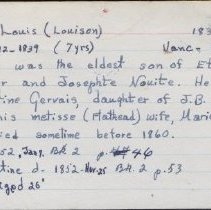 Louis (Louison) 183
12-1839 (7yrs) Vanc-
was the eldest son of Et
er and Josephte Nouite. He
rine Gervais, daughter of J.B.
his metisse (Flathead) wife, Marie
ied sometime before 1860.
52, Jan 9. Bk 2 p. 46
tine d- 1852-Nov 25 Bk 2 p. 53
aged 26"